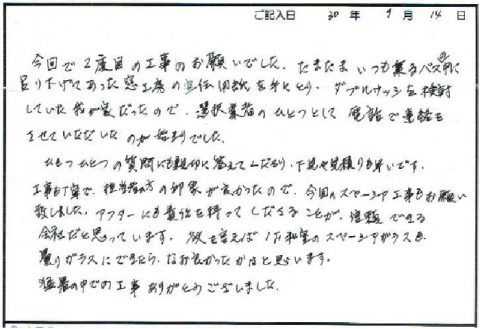 ご記入日 30年 9月 14日
今回で2度目の工事のお願いでした。たまたま いつも乗るバスの中に
吊り下げてあった窓工房の宣伝用紙を手にとり、ダブルサッシを検討
していた我が家だったので、選択業者のひとつとして電話で連絡を
させていただいたのが始まりでした。
ひとつひとつの質問にも親切に答えてくださり、下見や見積りも早いです。
工事も丁寧で、担当の方の印象が良かったので、今回のスペーシア工事もお願い
致しました。アフターにも責任を持って下さることが、信頼できる
会社だと思っています。欲を言えば 和室のスペーシアガラスも
曇りガラスにできたら、なお良かったかなと思います。
猛暑の中での工事 ありがとうございました。